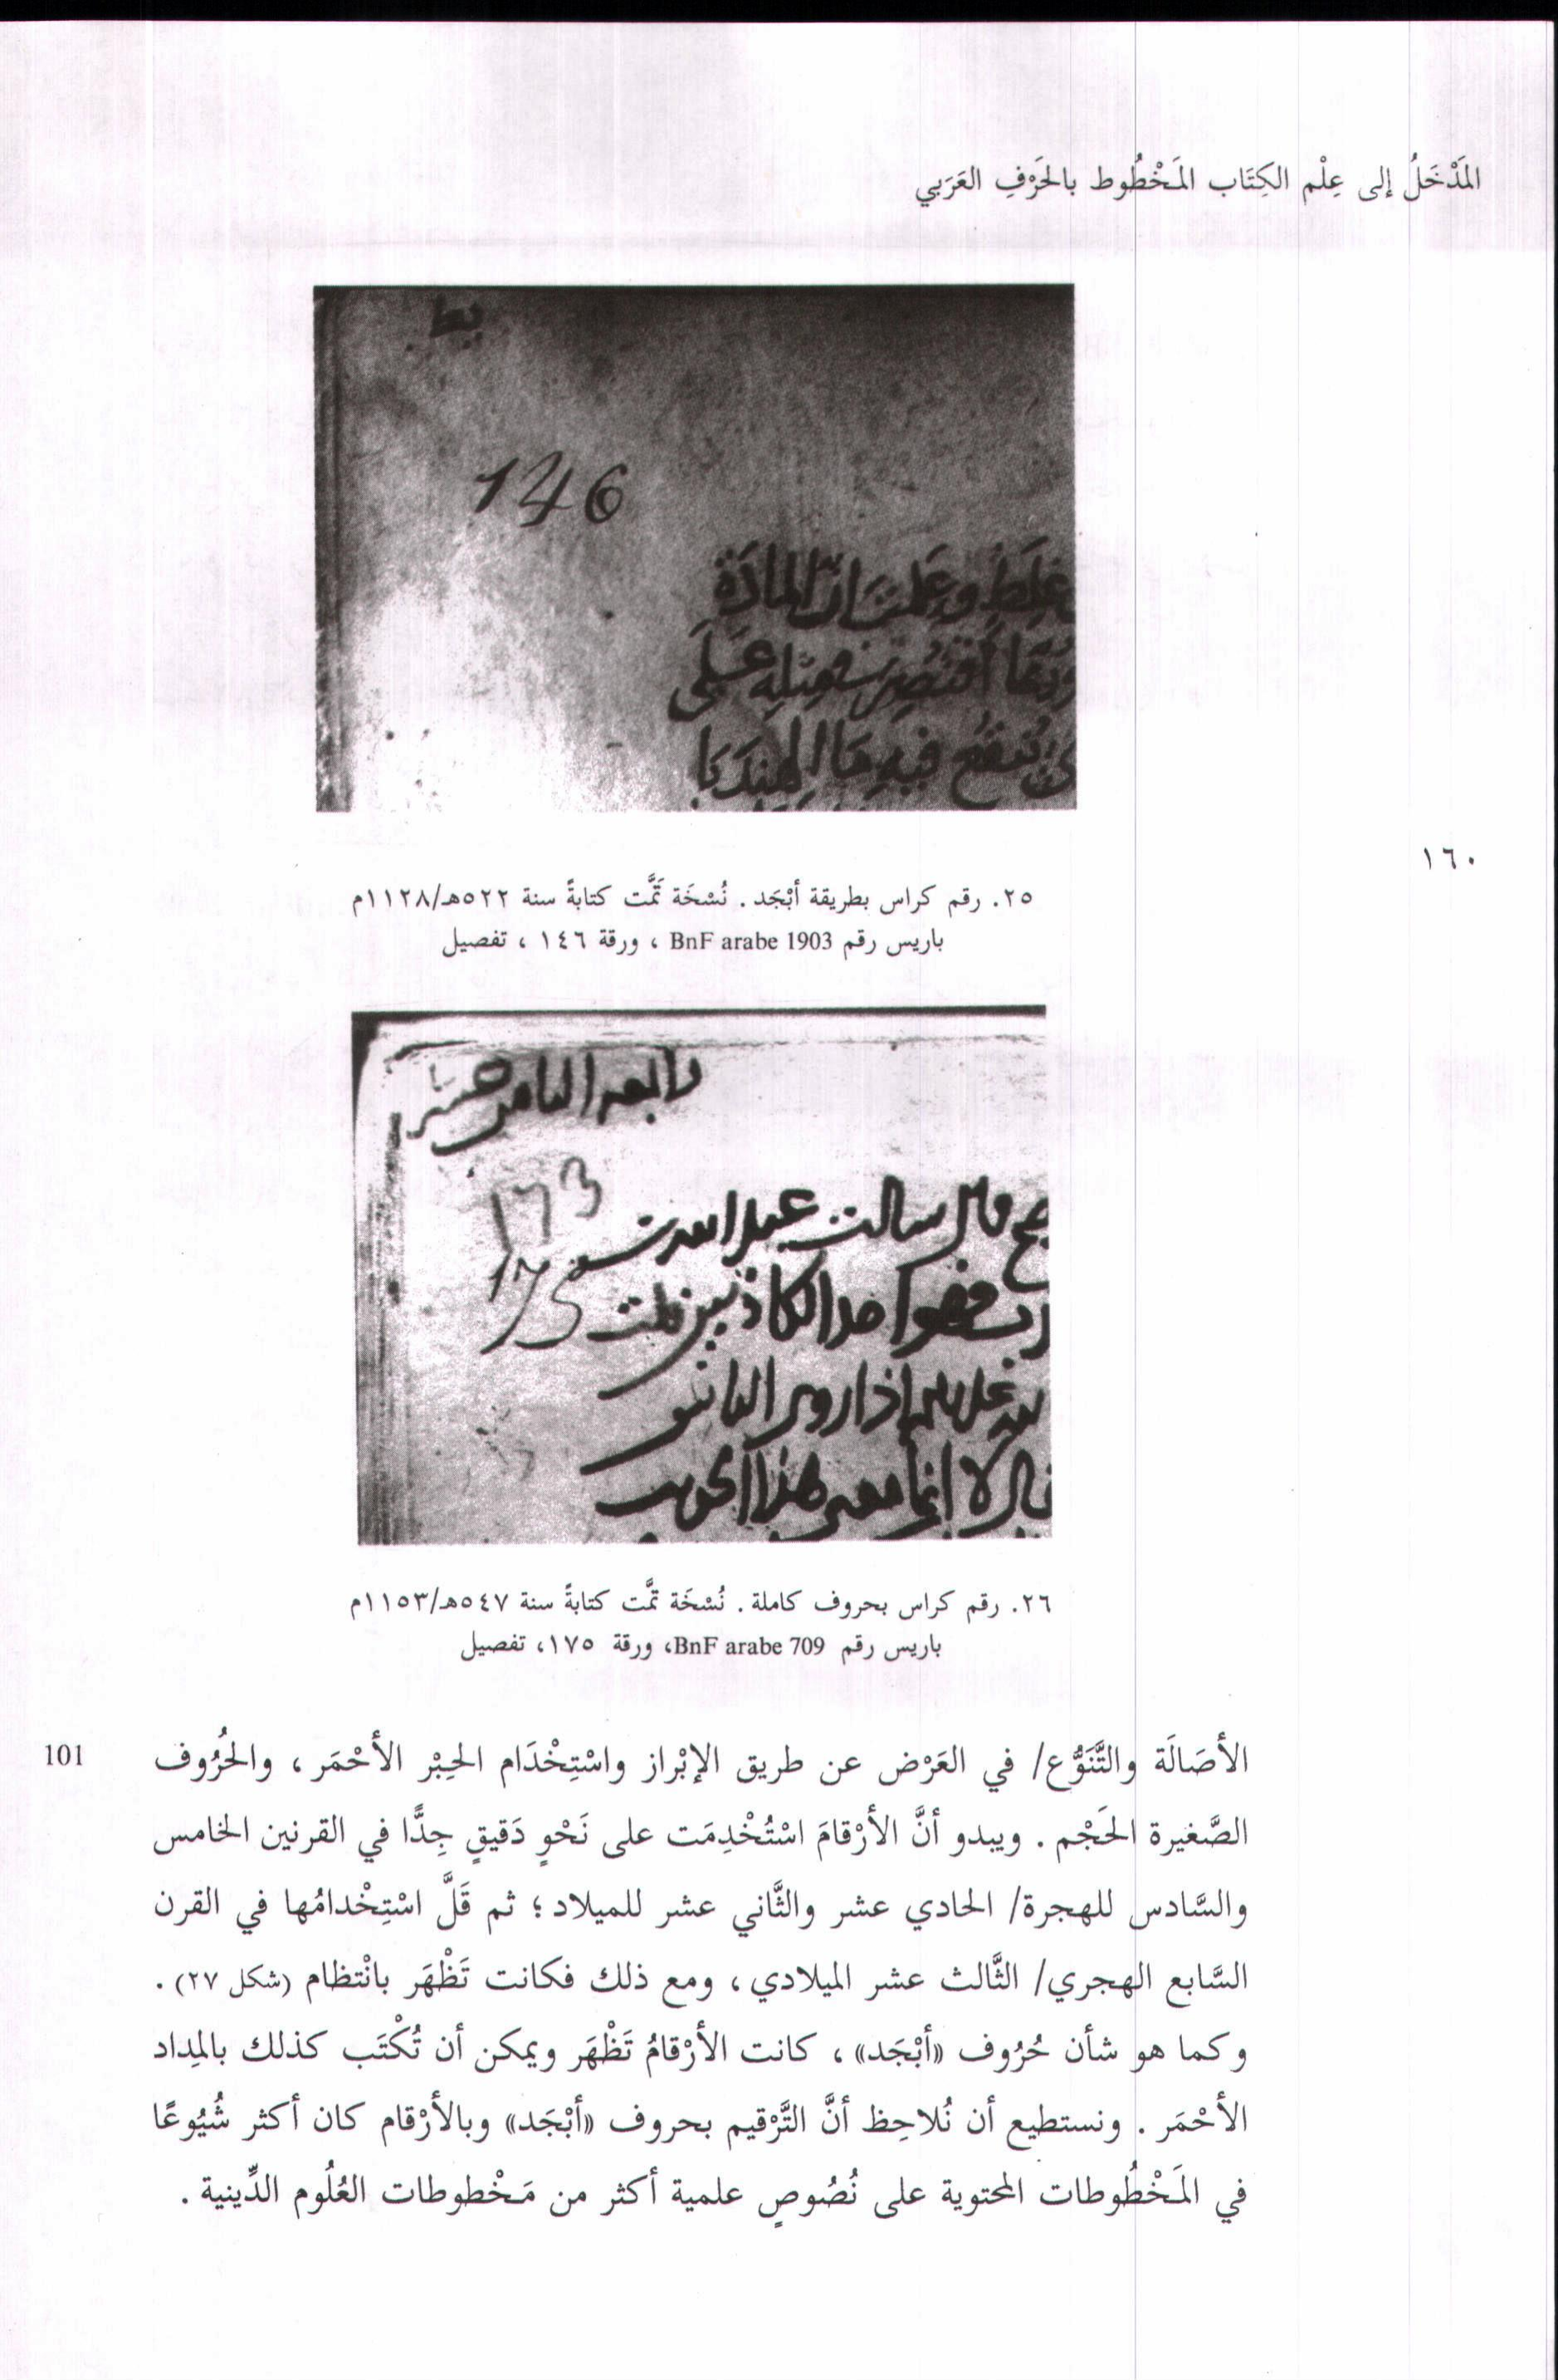 المَدْخَلُ إلى عِلْم الكِتَاب المَخْطُوط بالحَرْفِ العَرَبي
يط
146
غلط وعلمت ان المادة
على
فيه ما الهندبا
١٦٠
٢٥. رقم كراس بطريقة أبْجَد . نُسْخَة تَمَّت كتابةً سنة ٥٢٢هـ/١١٢٨م
باريس رقم BnF arabe 1903 ، ورقة ١٤٦ ، تفصيل
173
قال سالت عبد الله
175
الكاذبين قلت
اذا روى الناس
قال لا انما هذا
٢٦. رقم كراس بحروف كاملة . نُسْخَة تمَّت كتابةً سنة ٥٤٧هـ/١١٥٣م
باريس رقم BnF arabe 709، ورقة ١٧٥، تفصيل
الأصَالَة والتَّنَوُّع/ في العَرْض عن طريق الإبْراز واسْتِخْدَام الحِبْر الأحْمَر ، والحُرُوف
101
الصَّغيرة الحَجْم . ويبدو أنَّ الأرْقامَ اسْتُخْدِمَت على نَحْوٍ دَقيقٍ جِدًّا في القرنين الخامس
والسَّادس للهجرة/ الحادي عشر والثَّاني عشر للميلاد ؛ ثم قَلَّ اسْتِخْدامُها في القرن
السَّابع الهجري/ الثَّالث عشر الميلادي ، ومع ذلك فكانت تَظْهَر بانْتظام (شكل ٢٧) .
وكما هو شأن حُرُوف «أبْجَد» ، كانت الأرْقامُ تَظْهَر ويمكن أن تُكْتَب كذلك بالمِداد
الأحْمَر . ونستطيع أن نُلاحِظ أنَّ التَّرْقيم بحروف «أبْجَد» وبالأرْقام كان أكثر شُيُوعًا
في المَخْطُوطات المحتوية على نُصُوصٍ علمية أكثر من مَخْطوطات العُلُوم الدِّينية .